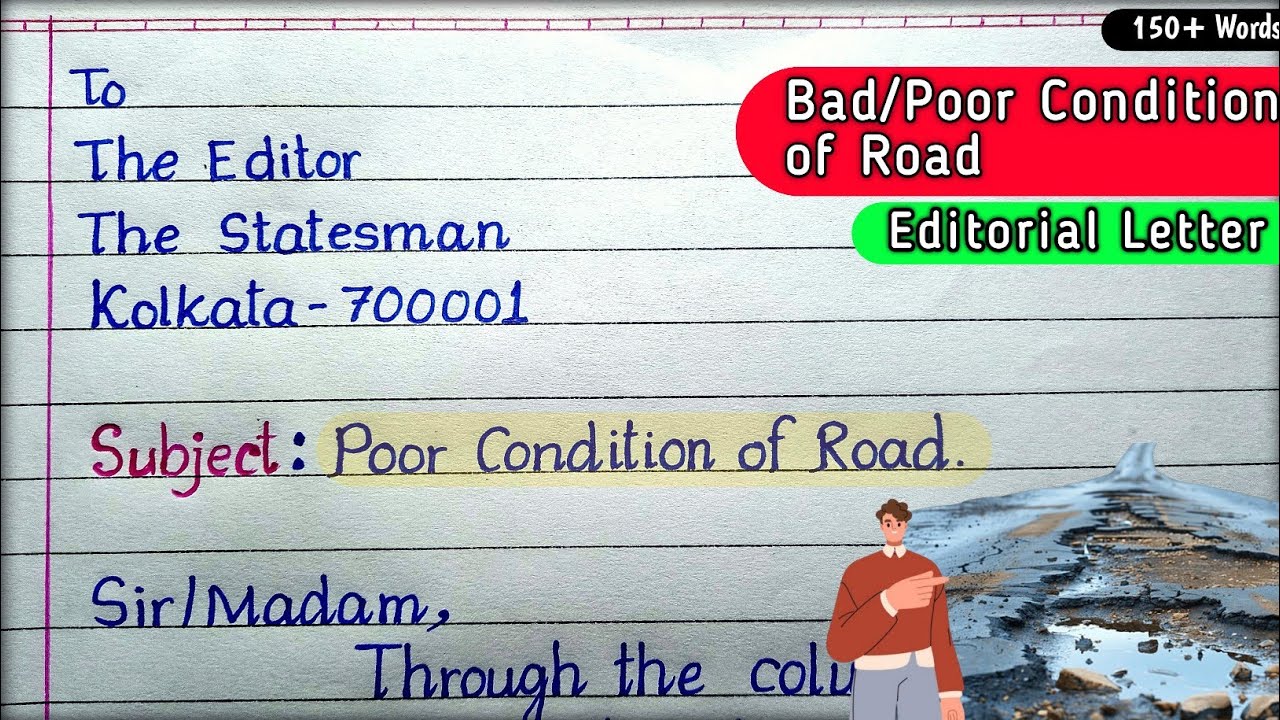 150+ Words
Bad/Poor Condition
of Road
Editorial Letter
To
The Editor
The Statesman
Kolkata-700001
Subject: Poor Condition of Road.
Sir/Madam,
Through the